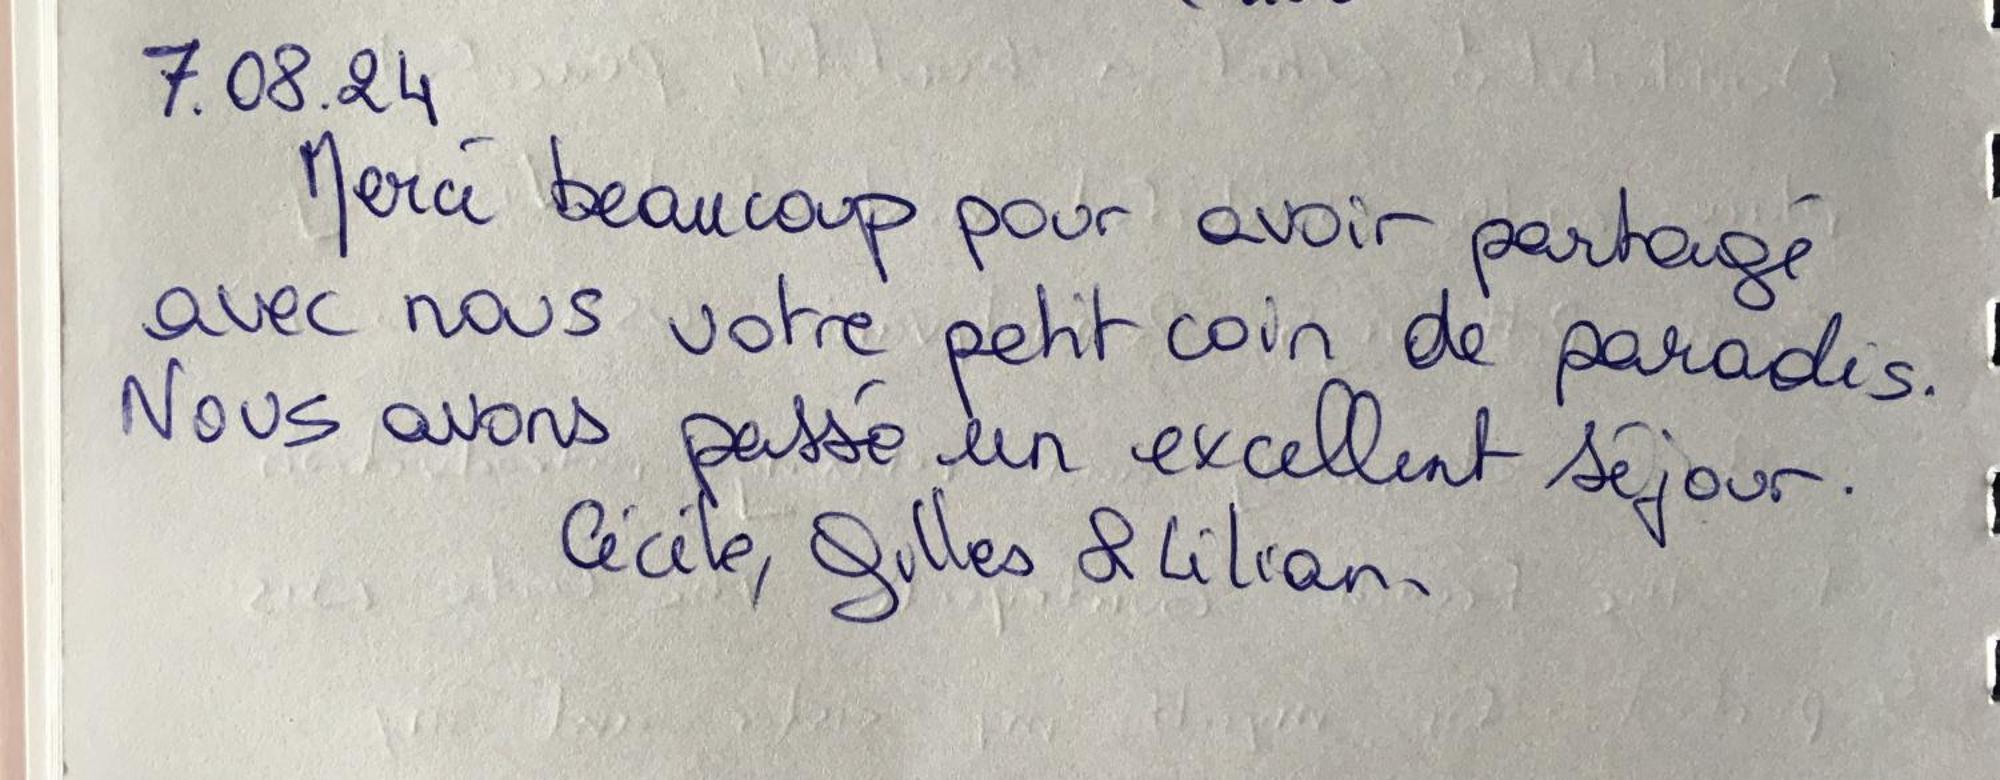 7.08.24
Merci beaucoup pour avoir partagé
avec nous votre petit coin de paradis.
Nous avons passé un excellent séjour.
Cécile, Gilles & Lilian.